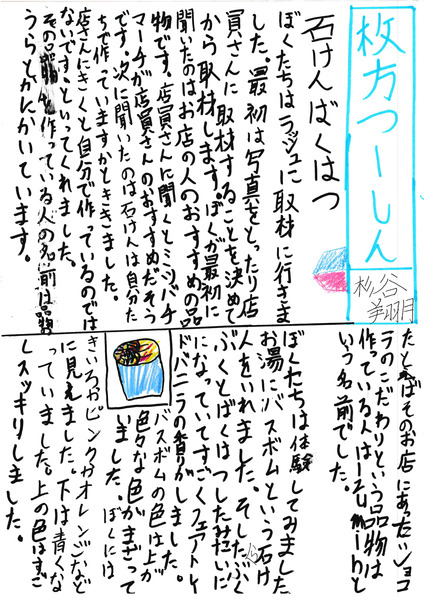 枚方つーしん
杉谷
翔月
石けんばくはつ
ぼくたちはラッシュに取材に行きま
した。最初は写真をとったり店
員さんに取材することを決めて
から取材します。ぼくが最初に
聞いたのはお店の人のおすすめの品
物です。店員さんに聞くとミツバチ
マーチが店員さんのおすすめだそう
です。次に聞いたのは石けんは自分た
ちで作っていますかとききました。
店さんにきくと自分で作っているのでは
ないです。といってくれました。
その品物を作っている人の名前は品物
うらとかにかいています。
たとえばそのお店にあったショコ
ラのこだわりという品物は
作っている人はIzuminと
いう名前でした。
ぼくたちは体験してみました
お湯にバスボムという石け
人をいれました。そしたらぶく
ぶくとばくはつしたみたいに
になっていてすごくフェアトレイ
ドバニラの香がしました。
バスボムの色は上が
色々な色がまざって
いました。ぼくには
きいろやピンクやオレンジなど
に見えました。下は青くな
っていました。上の色はすご
しスッキリしました。